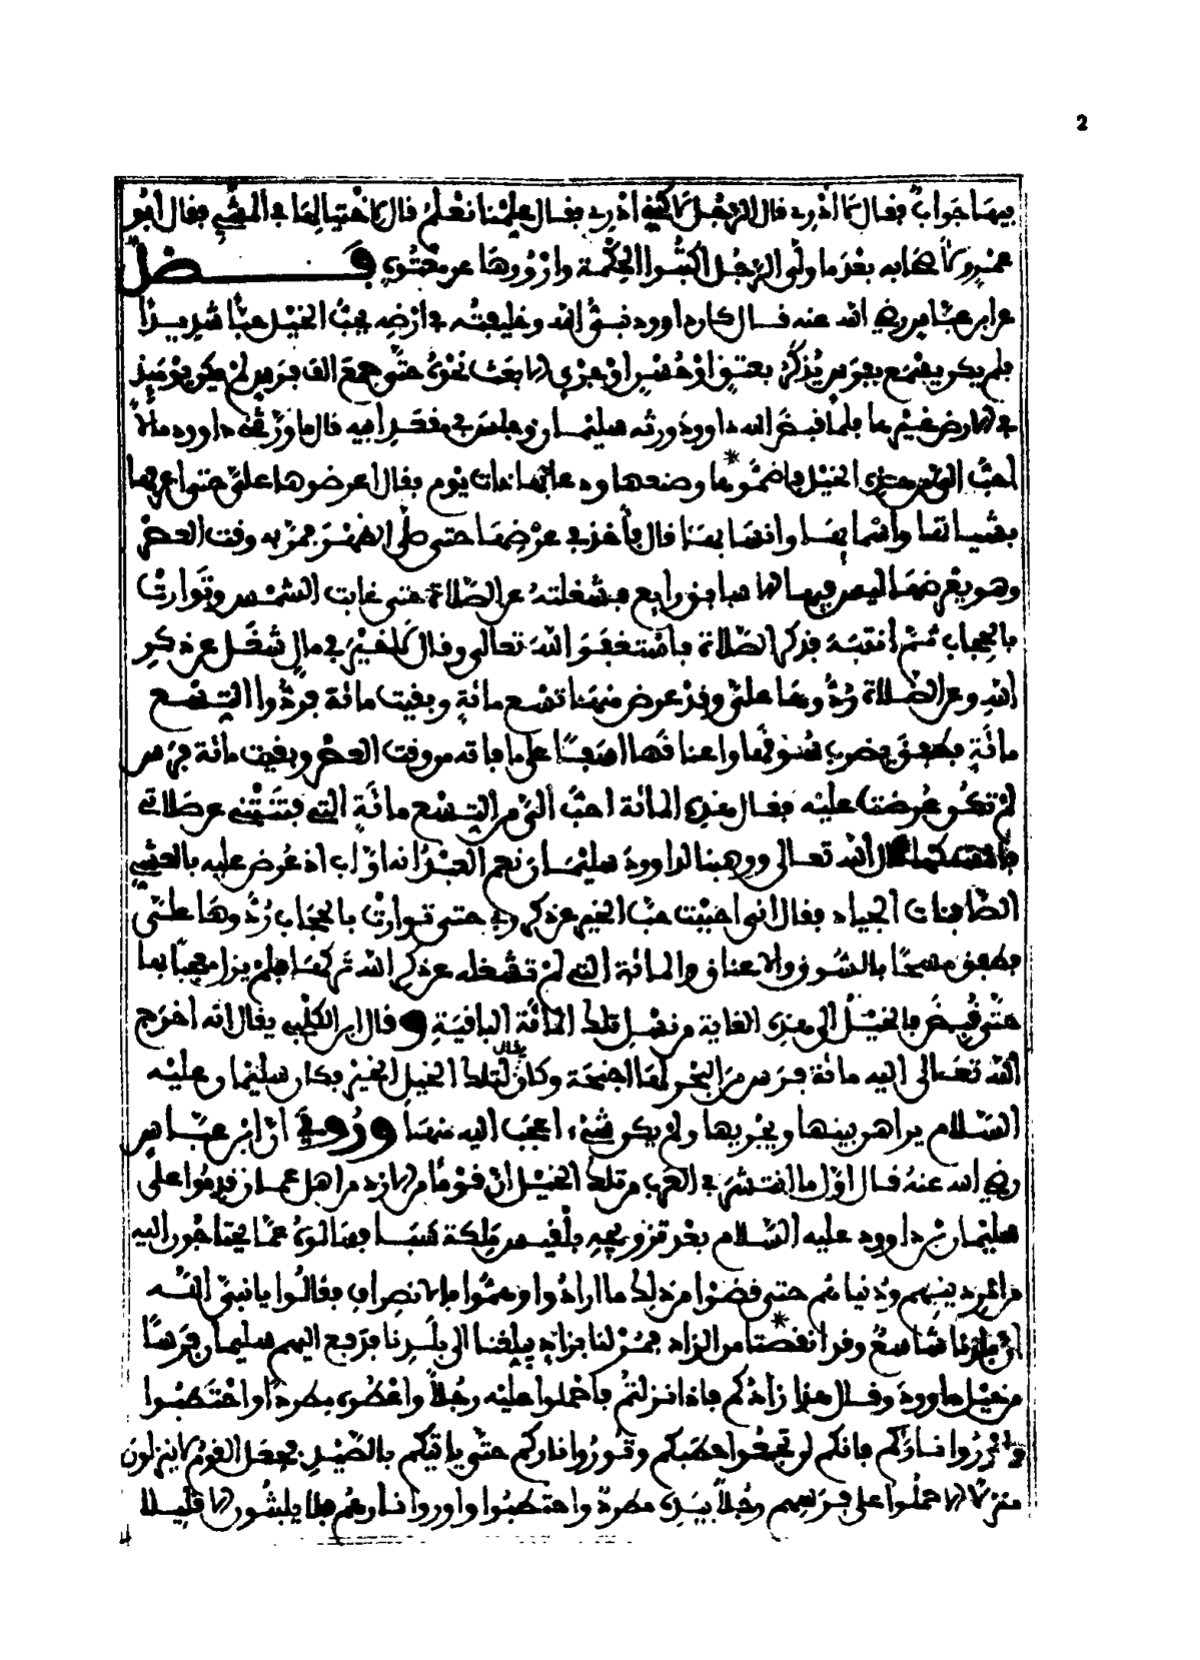 2
فيها جواب فقال لا أدري قال الرجل لاكني أدري فقال علمنا نعلم قال لاختيالها في المشي فقال أبو
عمرو لأصحابه بعد ما ولى الرجل اكتبوا الحكمة وارووها عن معتوه فصل
عن ابن عباس رضي الله عنه قال كان داوود نبي الله وخليفته في أرضه يحب الخيل حبا شديدا
فلم يكن يسمع بفرس يذكر بعتق أو حسن أو جري إلا بعث نحوه حتى جمع ألف فرس لم يكن يومئذ
في الأرض غيرها فلما قبض الله داوود ورثه سليمان وجلس في مقعد أبيه قال ما ورثني داوود مالا
أحب إلي من هذه الخيل وضعها ودعا بها ذات يوم فقال اعرضوها علي حتى أعرفها
بشياتها وأسمائها وأنسابها قال فأخذ في عرضها حتى صلى الظهر فمر به وقت العصر
وهو يعرضها ليس فيها إلا سابق رايع فشغلته عن الصلاة حتى غابت الشمس وتوارت
بالحجاب ثم انتبه فذكر الصلاة فاستغفر الله تعالى وقال لا خير في مال شغل عن ذكر
الله وعن الصلاة ردوها علي وقد عرض منها تسع مائة وبقيت مائة فردوا التسع
مائة فطفق يضرب سوقها وأعناقها أسفا على ما فاته من وقت العصر وبقيت مائة فرس
لم تكن عرضت عليه فقال هذه المائة أحب إلي من التسع مائة التي فتنتني عن صلاتي
قال الله تعالى ووهبنا لداوود سليمان نعم العبد إنه أواب إذ عرض عليه بالعشي
الصافنات الجياد فقال إني أحببت حب الخير عن ذكر ربي حتى توارت بالحجاب ردوها علي
فطفق مسحا بالسوق والأعناق والمائة التي لم تشغله عن ذكر الله تركها فلم يزل معجبا بها
حتى قبض فالخيل إلى هذه الغاية من نسل تلك المائة الباقية وقال ابن الكلبي يقال إنه أخرج
الله تعالى إليه مائة فرس من البحر لها أجنحة وكان يقال لتلك الخيل الخير فكان سليمان عليه
السلام يراهن بينها ويجريها ولم يكن شيء أعجب إليه منها وروي أن ابن عباس
رضي الله عنه قال أول ما انتشر في العرب من تلك الخيل أن قوما من الأزد من أهل عمان قدموا على
سليمان بن داوود عليه السلام بعد تزويجه بلقيس ملكة سبا فسألوه عما يحتاجون إليه
من أمر دينهم ودنياهم حتى قضوا من ذلك ما أرادوا وهموا بالانصراف فقالوا يا نبي الله
إن بلدنا شاسع وقد انفضنا من الزاد فمر لنا بزاد يبلغنا إلى بلدنا فدفع إليهم سليمان فرسا
من خيل داوود وقال هذا زادكم فإذا نزلتم فاحملوا عليه رجلا وأعطوه مطردا واحتطبوا
وأوروا ناركم فإنكم لن تجمعوا حطبكم وتوروا ناركم حتى يأتيكم بالصيد فجعل القوم لا ينزلون
منزلا إلا حملوا على فرسهم رجلا بيده مطردة واحتطبوا وأوروا نارهم فلا يلبثون إلا قليلا